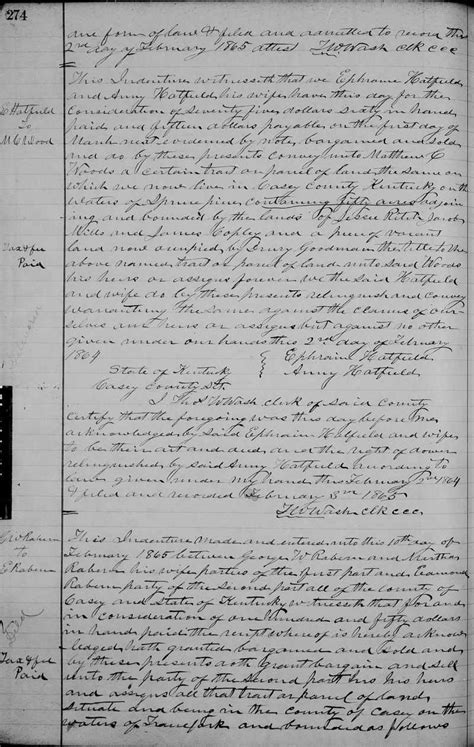 274
one form of law & filed and admitted to record this
2nd day of February 1865 attest T W Wash clk ccc
This Indenture witnesseth that we Ephraim Hatfield
and Anny Hatfield his wife have this day for the
Consideration of Seventy five dollars sixty in hand
paid and fifteen dollars payable on the first day of
March next evidenced by note, bargained and Sold
and do by these presents convey unto Matthew C
Woods a certain tract or parcel of land the same on
which we now live in Casey County Kentucky on the
waters of containing fifty acres
ing, and bounded by the lands of Jesse Jacob
Wills and James Copley and a of vacant
land now occupied by Henry Goodman the title to the
above named tract or parcel of land unto said Woods
his heirs or assigns forever we the Said Hatfield
and wife do by these presents relinquish and convey
warranting the same against the claims of our
selves our heirs or assigns but against no other
given under our hands this 2nd day of February
1864
Ephraim Hatfield
Anny Hatfield
State of Kentucky
Casey County Sct
I Thos W Wash clerk of Said County
certify that the foregoing was this day before me
acknowledged by Said Ephraim Hatfield and wife
to be their act and deed and the right of dower
relinquished by said Anny Hatfield according to
law given under my hand this February 2nd 1864
& filed and recorded February 3rd 1865
T W Wash clk ccc
E Hatfield
To
M C Wood
Tax & fee
Paid
This Indenture made and entered into this 10th day of
February 1865 between George W Rabern and Martha
Rabern his wife parties of the first part and Edmond
Rabern party of the Second part all of the county of
Casey and State of Kentucky witnesseth that for and
in consideration of one hundred and fifty dollars
in hand paid the receipt whereof is hereby acknow
ledged hath granted bargained and Sold and
by these presents doth Grant bargain and Sell
unto the party of the Second part his heirs
and assigns all that tract or parcel of land
situate and being in the county of Casey on the
waters of and bounded as follows
G W Rabern
to
E Rabern
Tax & fee
Paid